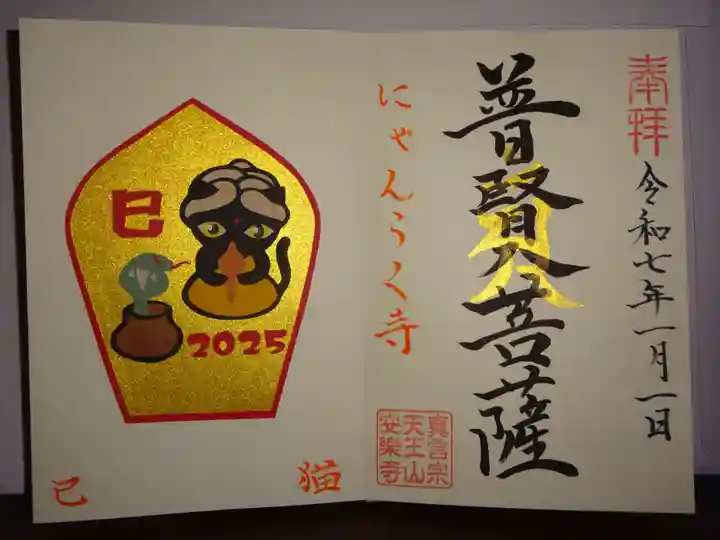 奉拝
令和七年一月一日
普賢菩薩
にゃんらく寺
真言宗
天王山
安樂寺
巳
2025
猫
己